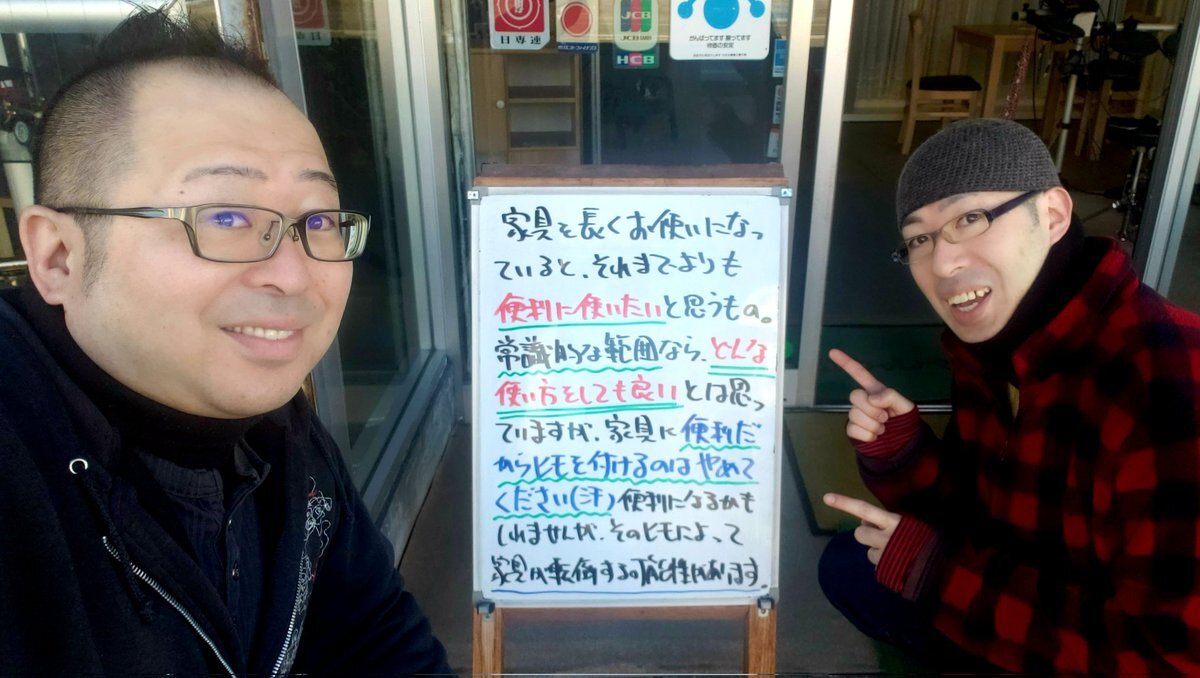 日専連
JCB
HCB
がんばってます 勝ってます
家具を長くお使いになっ
ていると、それまでよりも
便利に使いたいと思うもの。
常識的な範囲なら、どんな
使い方をしても良いとは思っ
ていますが、家具に便利だ
からヒモを付けるのはやめて
ください(汗)便利になるかも
しれませんが、そのヒモによって
家具が転倒する可能性があります。